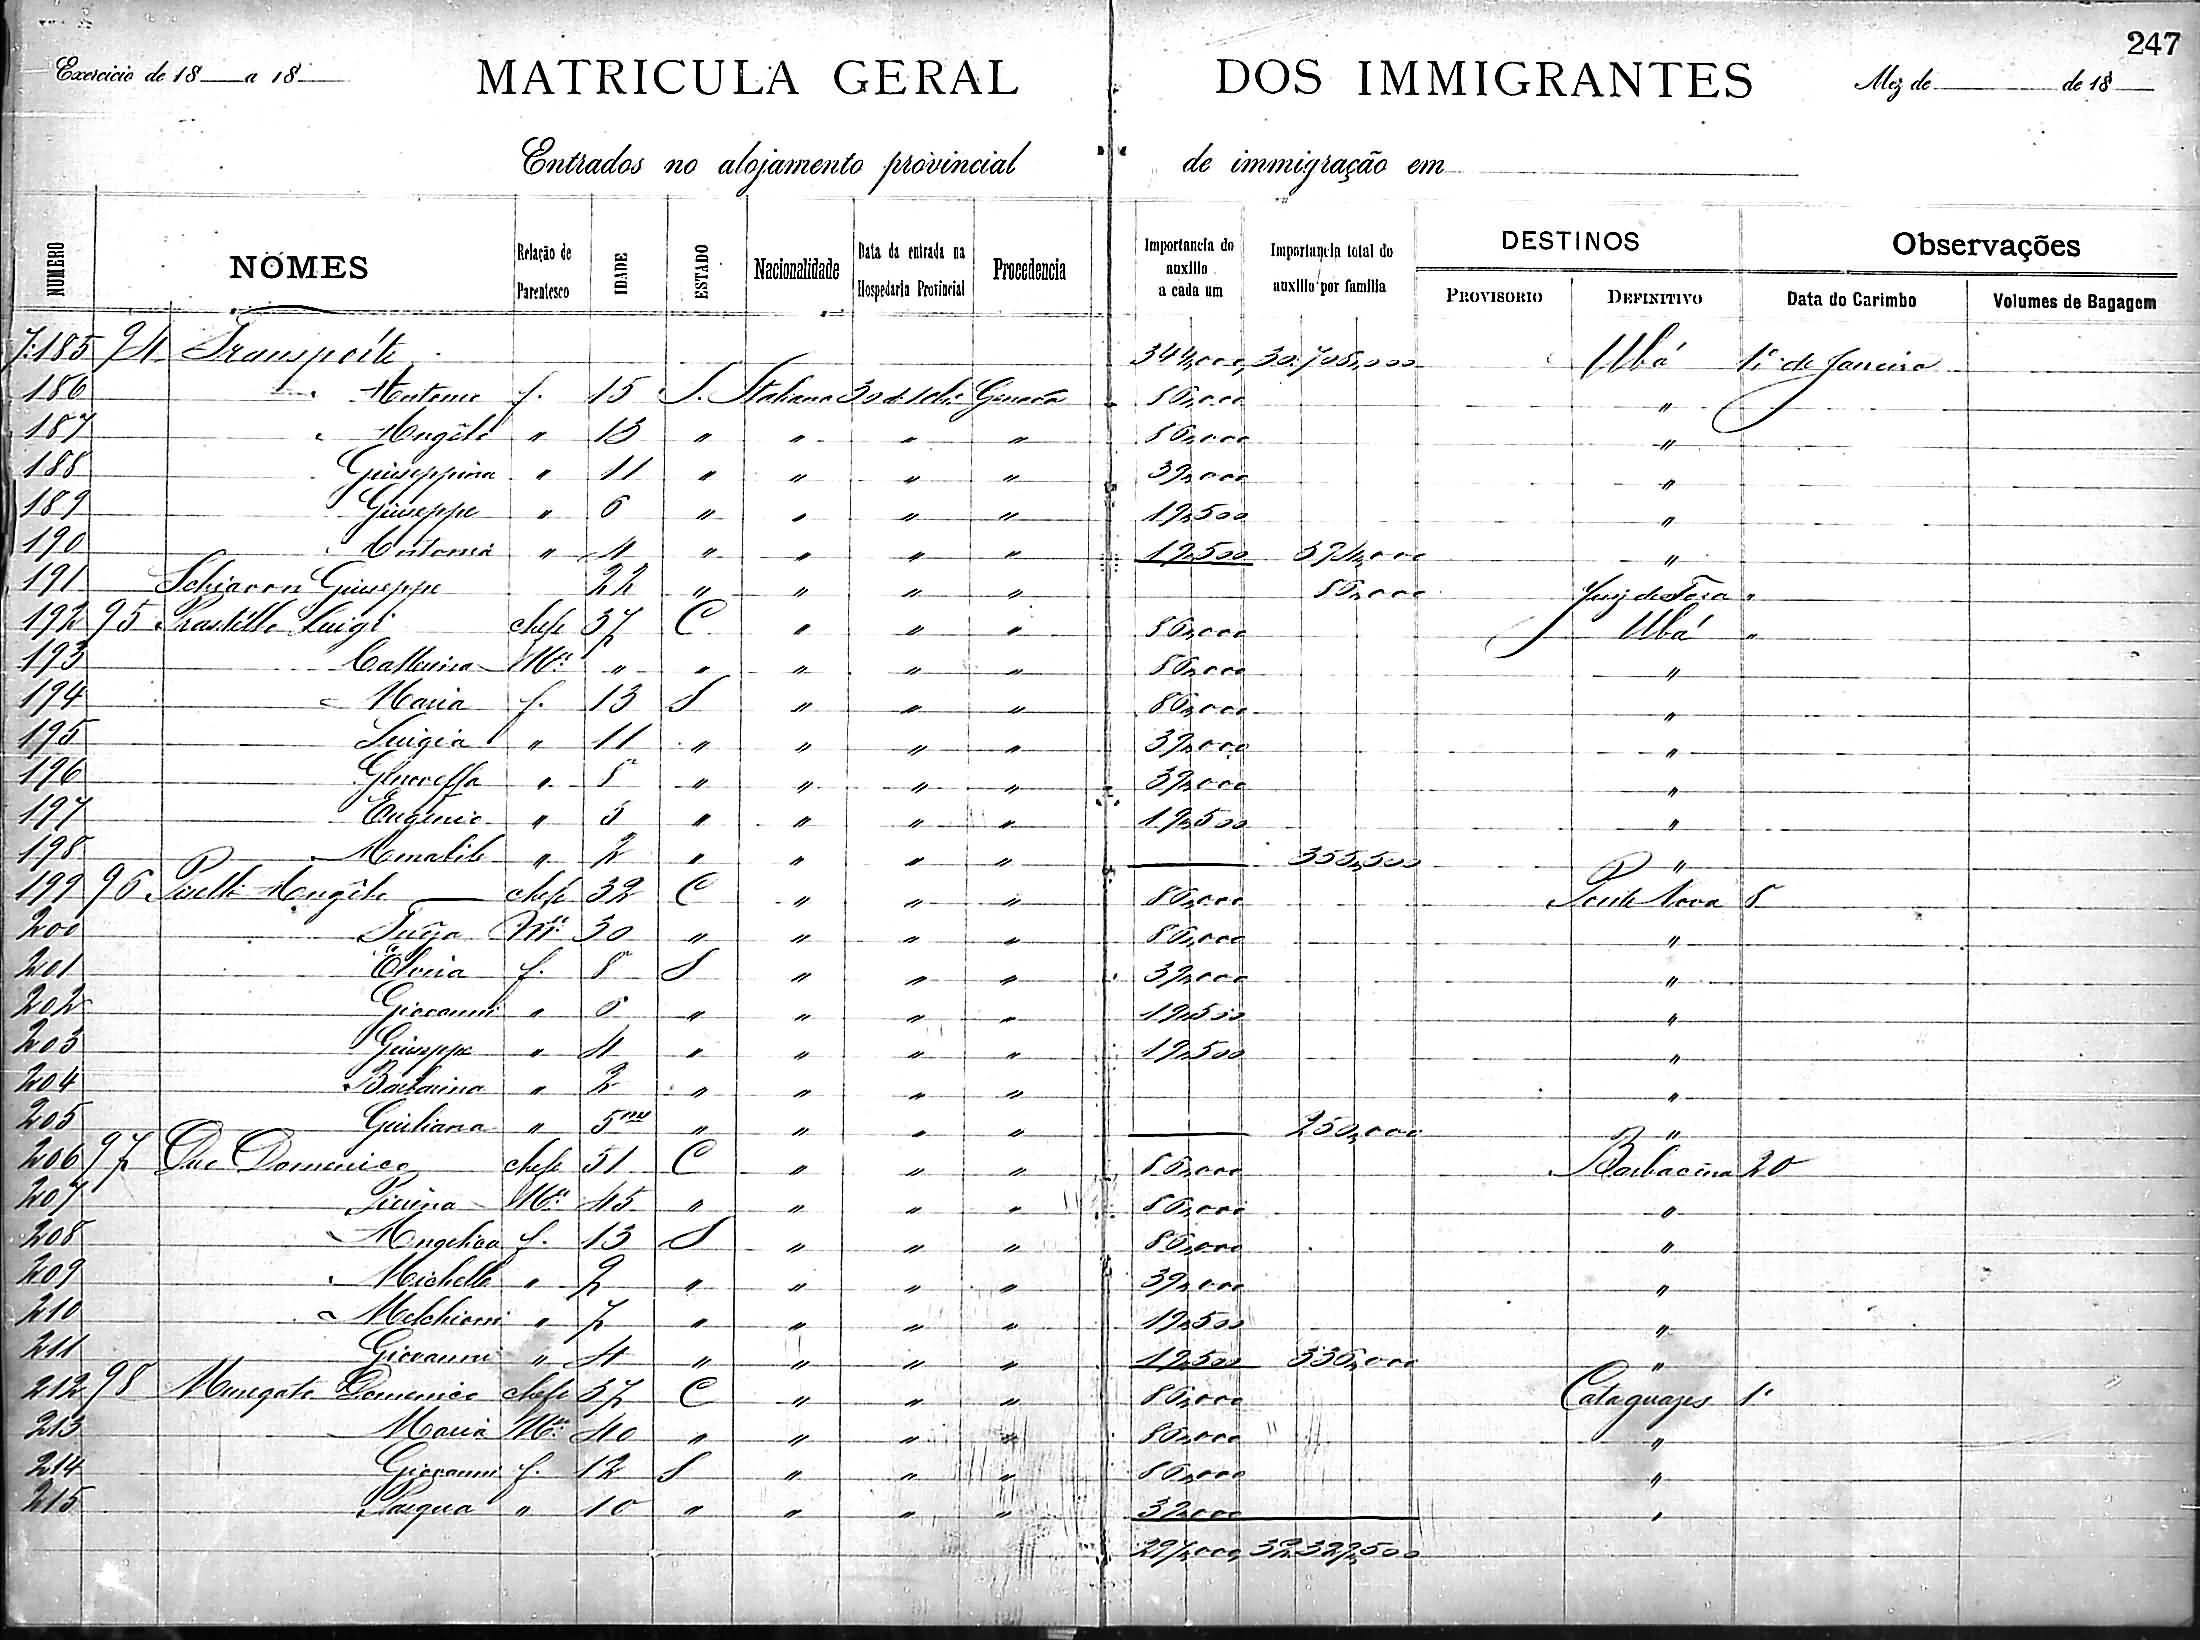 247
Exercicio de 18 a 18 MATRICULA GERAL DOS IMMIGRANTES Mez de de 18
Entrados no alojamento provincial de immigração em
NUMERO NOMES Relação de Parentesco IDADE ESTADO Nacionalidade Data da entrada na Hospedaria Provincial Procedencia Importancia do auxilio a cada um Importancia total do auxilio por familia DESTINOS PROVISORIO DEFINITIVO Observações Data do Carimbo Volumes de Bagagem
7.185 94 Transporte 344,000 30.708,000 Ubá 1º de Janeiro
186 " Antonio f. 15 S. Italiana 30 Genova 80,000 "
187 " Angelo " 13 " " " " 80,000 "
188 Giuseppina " 11 " " " " 39,000 "
189 Giuseppe " 6 " " " " 19,500 "
190 " Antonia " 4 " " " " 19,500 "
191 Schiavon Giuseppe 22 " " " " 80,000 Juiz de Fora "
192 95 Luigi chefe 37 C " " " 80,000 Ubá "
193 Catterina Mer " " " " " 80,000 "
194 " Maria f. 13 S " " " 80,000 "
195 Luigia " 11 " " " " 39,000 "
196 " 8 " " " " 39,000 "
197 Eugenio " 5 " " " " 19,500 "
198 " 2 " " " " "
199 96 Angelo chefe 32 C " " " 80,000 Ponte Nova 8
200 Mer 30 " " " " 80,000 "
201 Elvira f. 8 S " " " 39,000 "
202 Giovanni " 6 " " " " 19,500 "
203 Giuseppe " 4 " " " " 19,500 "
204 " 2 " " " " "
205 Giuliana " 5 ms " " " " "
206 97 Domenico chefe 51 C " " " 80,000 Barbacena 20
207 Pierina Mer 45 " " " " 80,000 "
208 " Angelica f. 13 S " " " 80,000 "
209 " Michelle " 9 " " " " 39,000 "
210 " " 7 " " " " 19,500 "
211 Giovanni " 4 " " " " 19,500 "
212 98 Domenico chefe 37 C " " " 80,000 Cataguazes 1º
213 Maria Mer 40 " " " " 80,000 "
214 Giovanni f. 12 S " " " 80,000 "
215 Pasqua " 10 " " " " 39,000 "